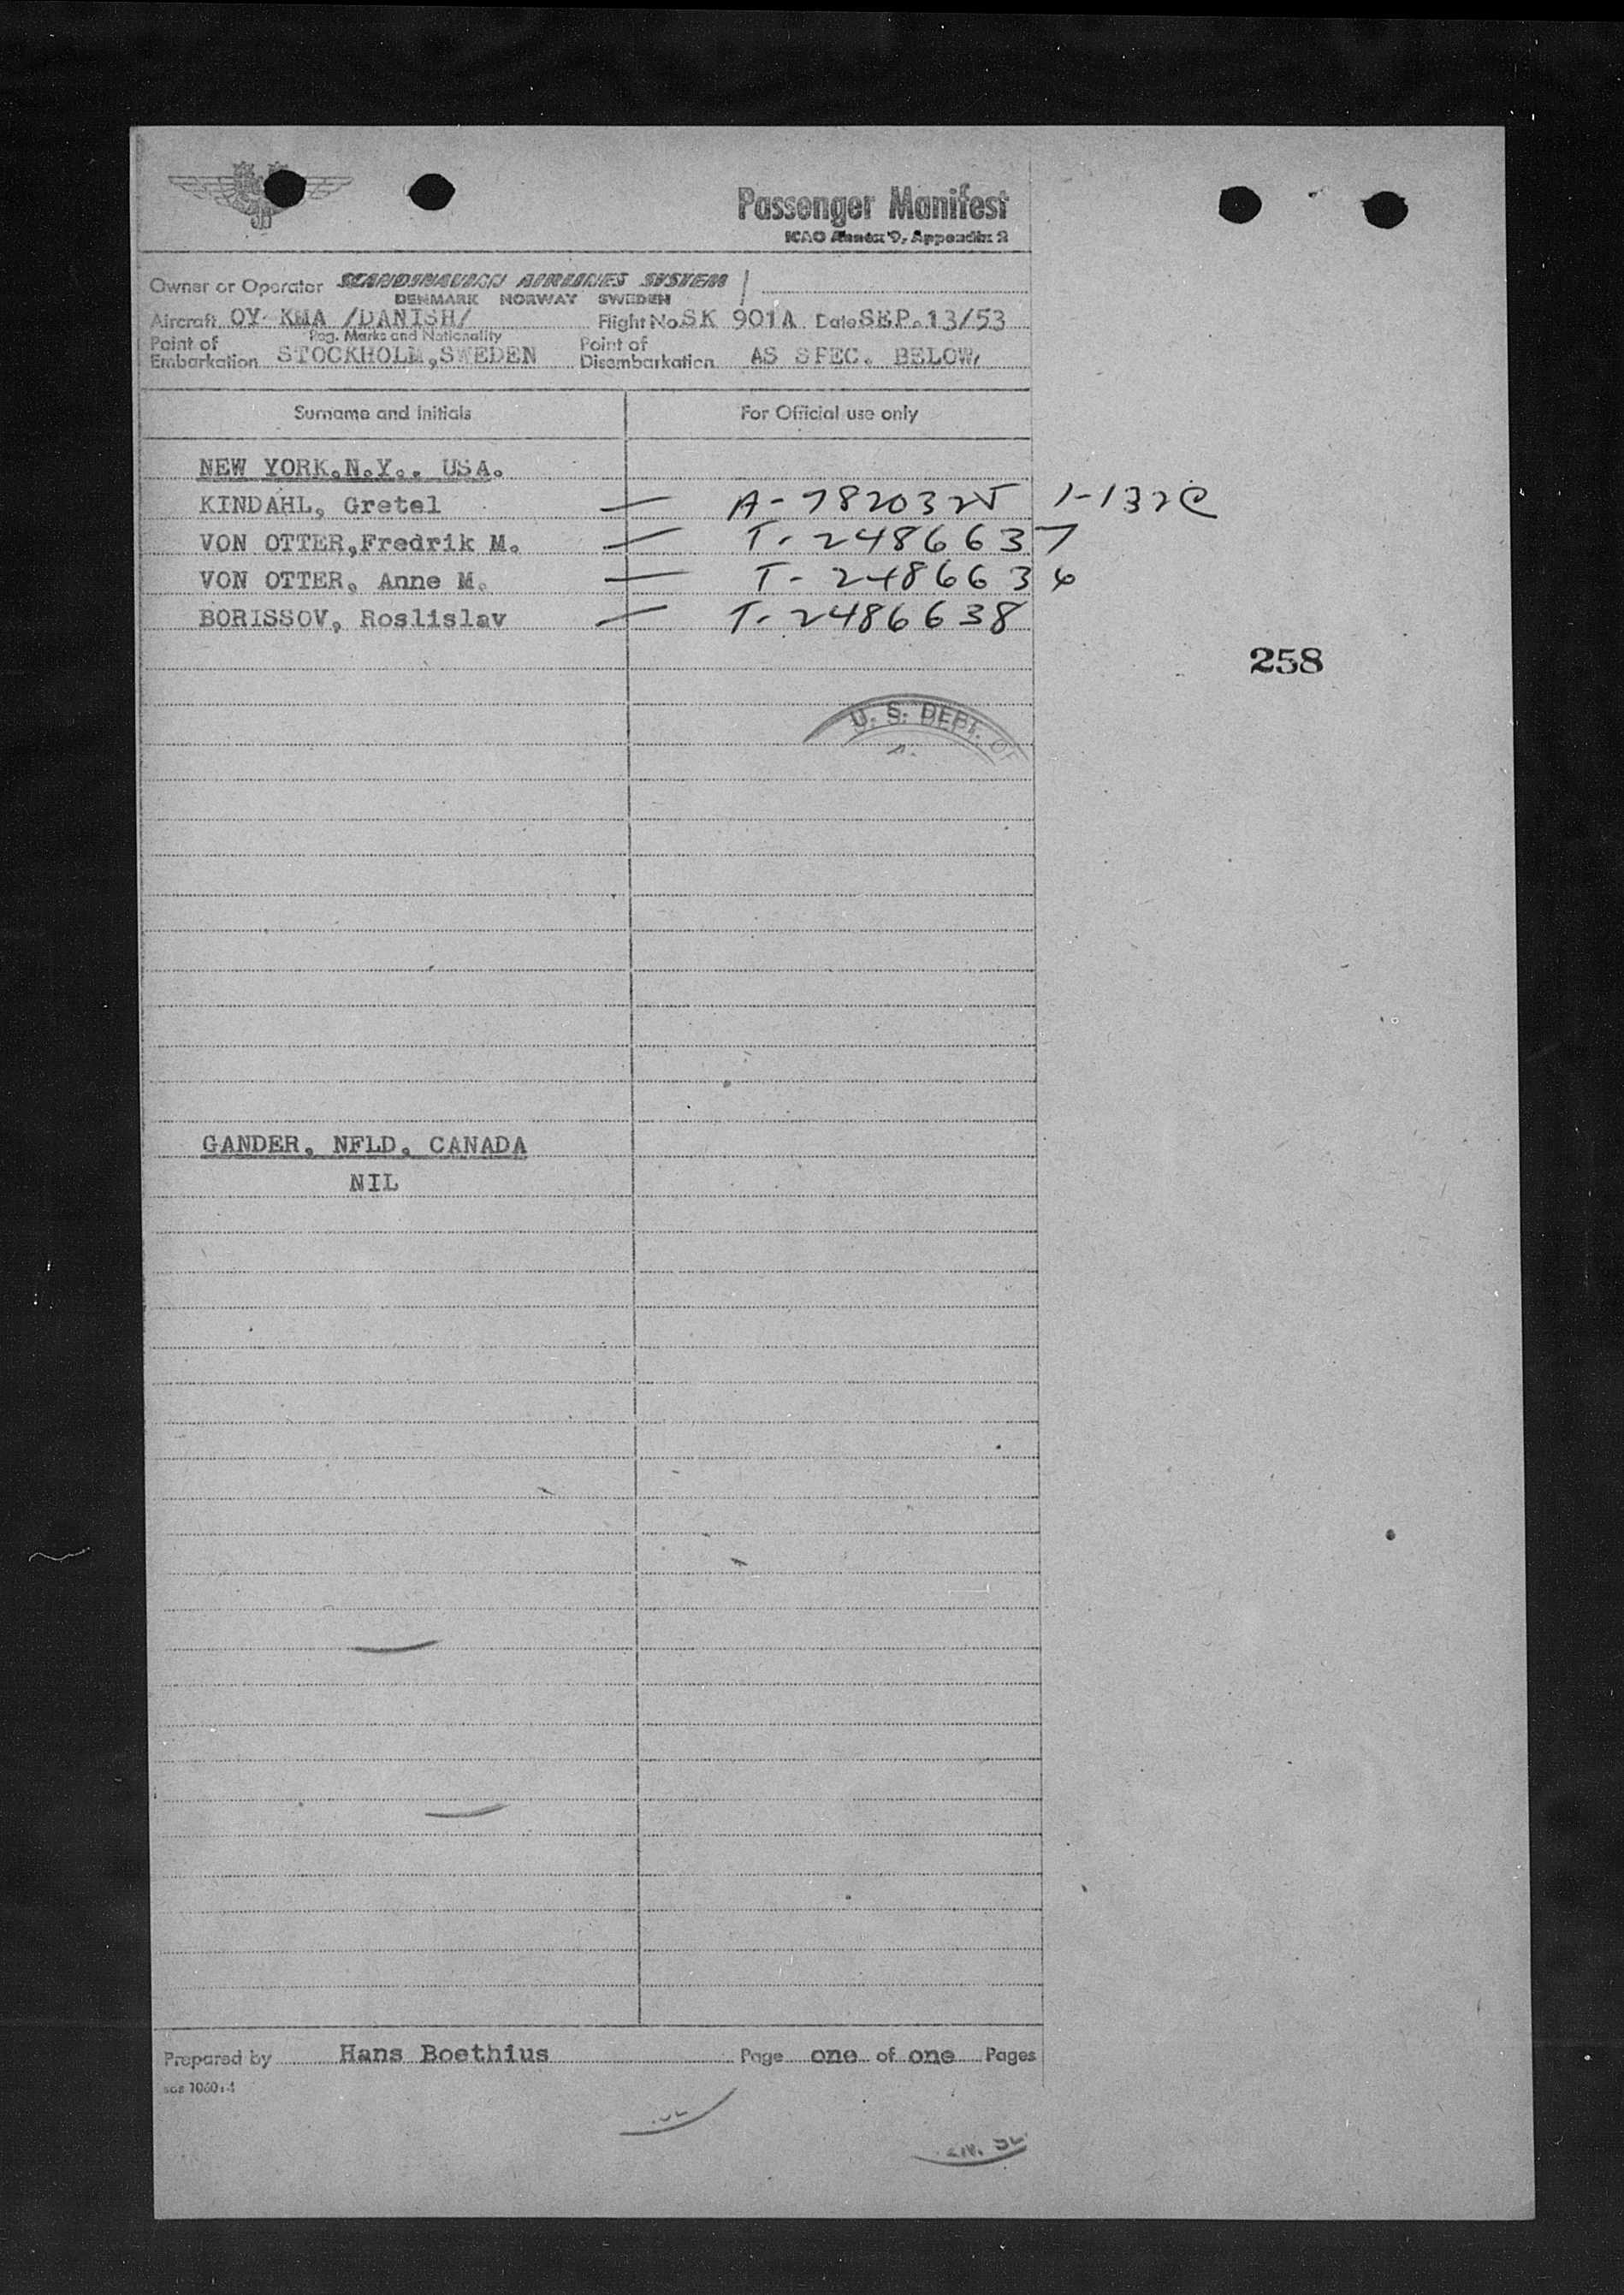 Passenger Manifest
ICAO Annex 9, Appendix 2
Owner or Operator SCANDINAVIAN AIRLINES SYSTEM
DENMARK NORWAY SWEDEN
Aircraft OY KMA /DANISH/ Flight No. SK 901A Date SEP. 13/53
Reg. Marks and Nationality
Point of Embarkation STOCKHOLM, SWEDEN Point of Disembarkation AS SPEC. BELOW,
Surname and initials For Official use only
NEW YORK, N.Y., USA.
KINDAHL, Gretel — A-7820325 1-132C
VON OTTER, Fredrik M. — T-2486637
VON OTTER, Anne M. — T-2486636
BORISSOV, Roslislav — T-2486638
258
U. S. DEPT. OF
GANDER, NFLD, CANADA
NIL
Prepared by Hans Boethius Page one of one Pages